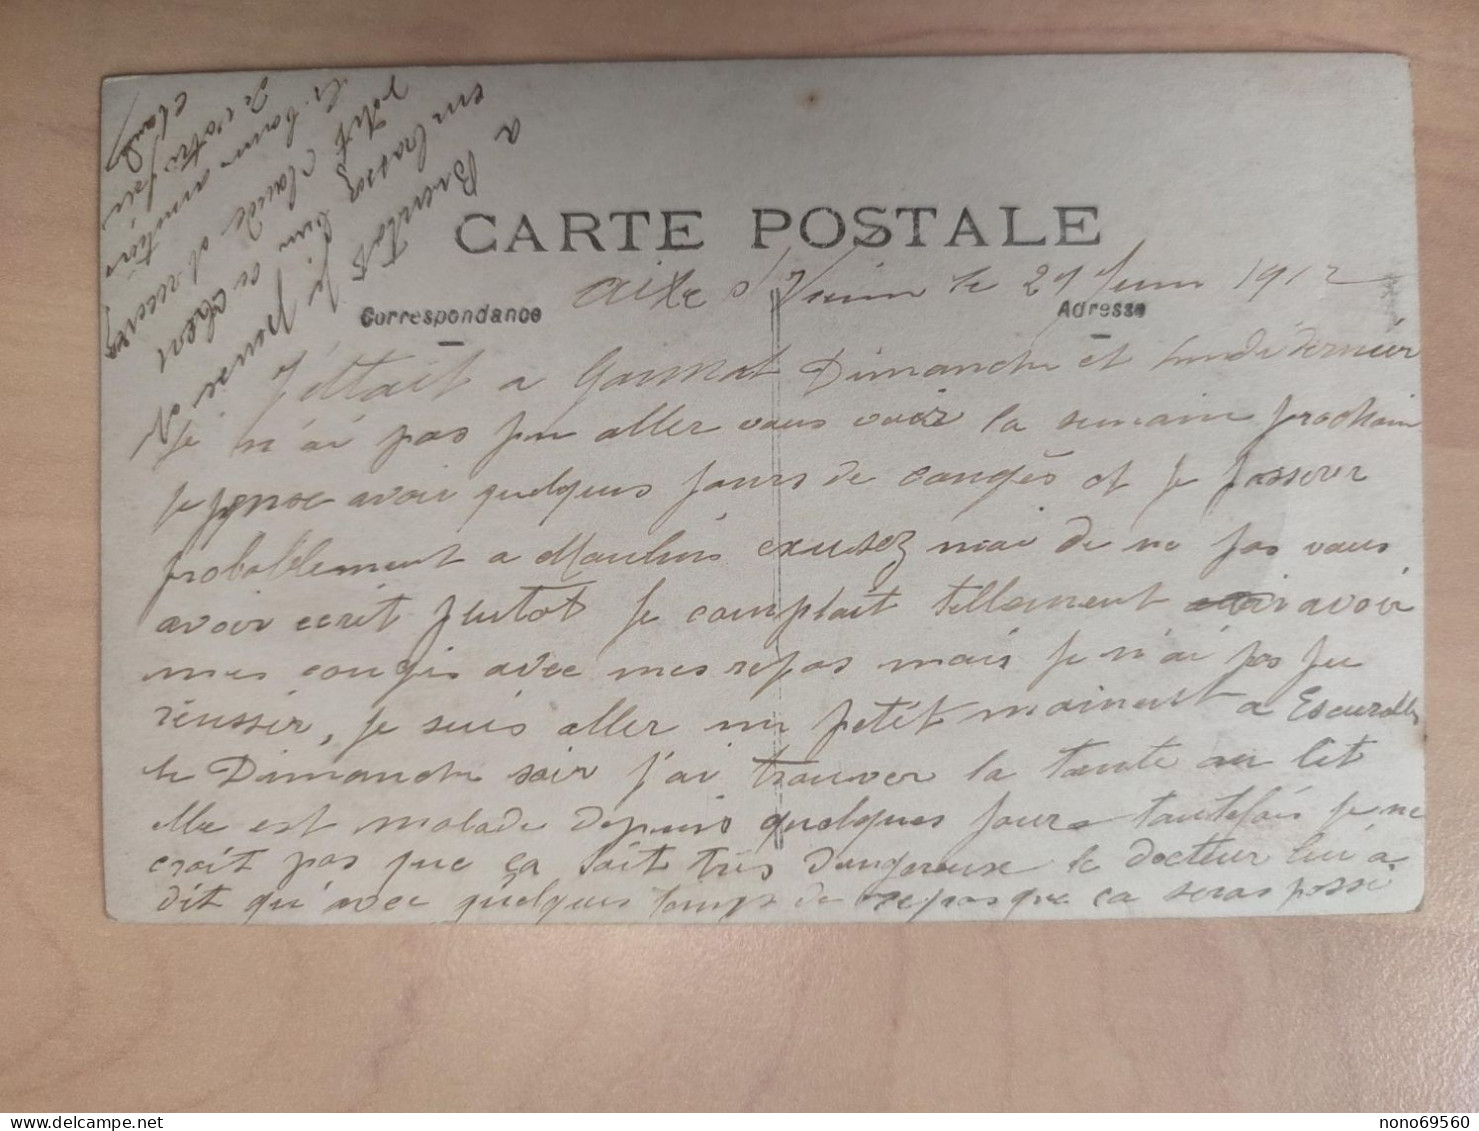 CARTE POSTALE
Correspondance
Adresse
Aixe s/ Vienne le 29 Juin 1912
J'ettait a Gannat Dimanche et lundi dernier
Je n'ai pas pu aller vous voir la semain prochain
je pense avoir quelques jours de congés et je passerer
probablement a Moulins excusez moi de ne pas vous
avoir ecrit plutot je comptait tellement avoir
mes congés avec mes repos mais je n'ai pas pu
réussir, je suis aller un petit moment a Escurolles
le Dimanche soir j'ai trouver la tante au lit
elle est malade depuis quelques jours toutefois je ne
croit pas que ça soit très dangereuse le docteur lui a
dit qu'avec quelques temps de repos que ca seras passé
Je pense
a Bientot
embrassez bien ce cher
petit Claude et recevez
les bonnes amitiés
de votre frère
Claude
nono69560